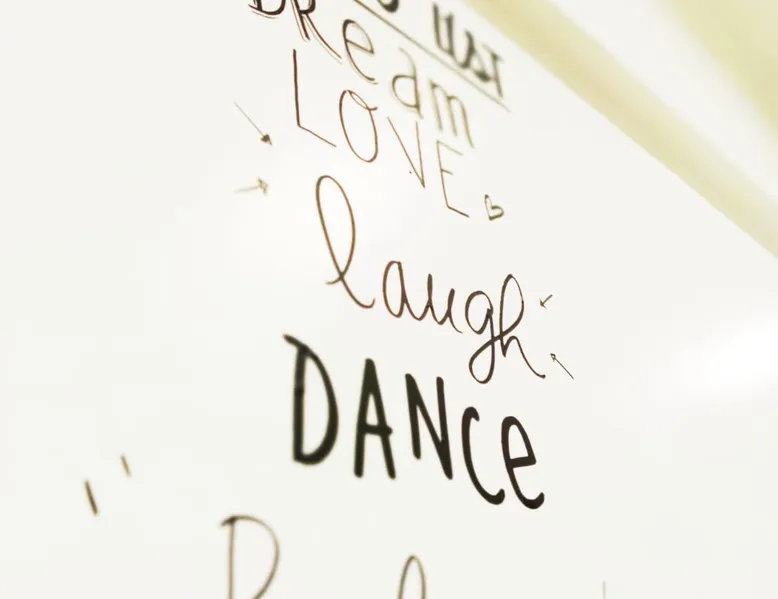 LIST
DReam
LOVE
laugh
DANCe